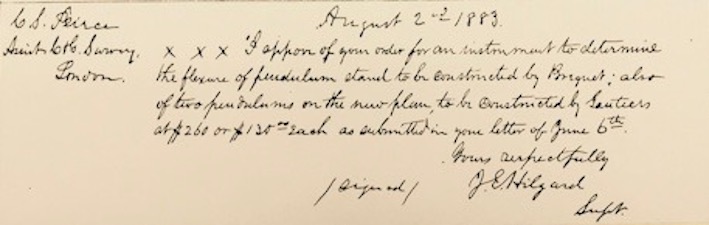 C. S. Peirce August 2nd 1883.
Assist. C&G. Survey, x x x "I approve of your order for an instrument to determine
London. the flexure of pendulum stand to be constructed by Breguet; also
of two pendulums on the new plan, to be constructed by Gautiers
at $260 or $130 00 each as submitted in your letter of June 6th.
Yours respectfully
(signed) J. E. Hilgard
Supt.